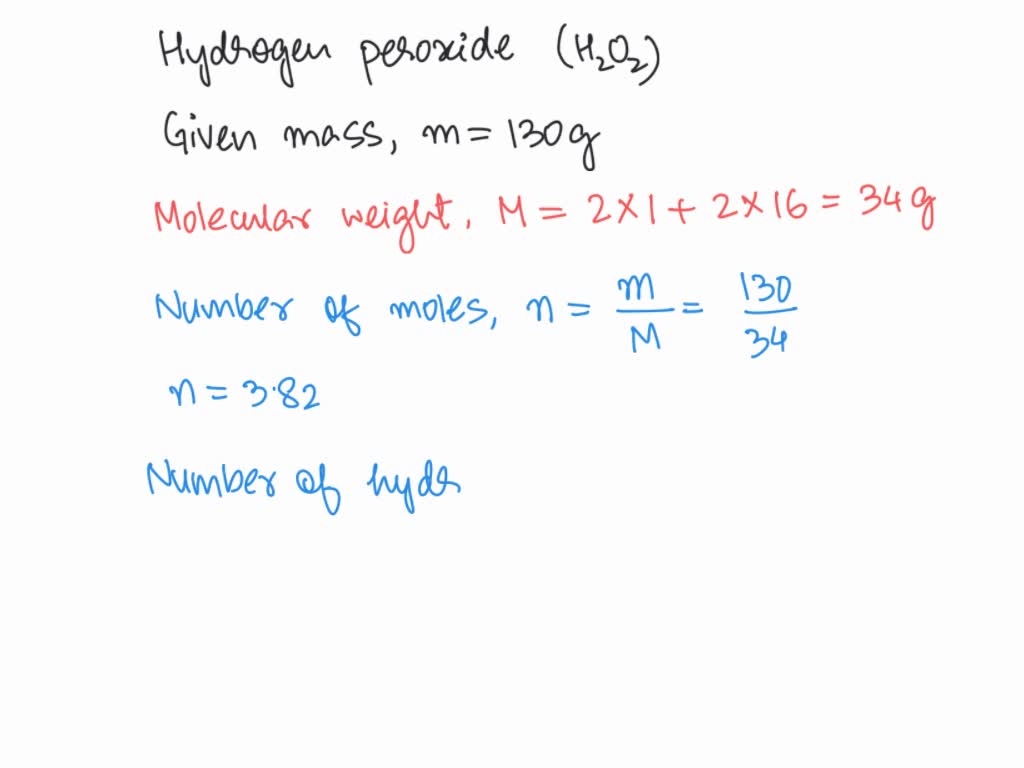 Hydrogen peroxide (H₂O₂)
Given mass, m = 130g
Molecular weight, M = 2×1 + 2×16 = 34g
Number of moles, n = m/M = 130/34
n = 3.82
Number of hydr